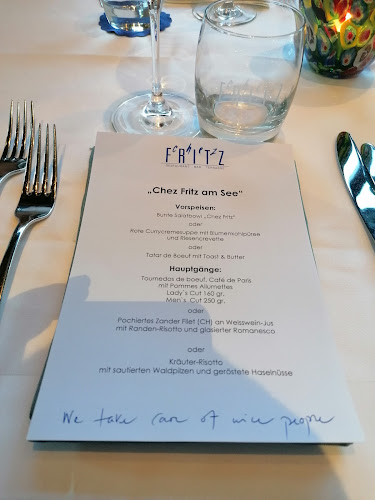 CHEZ
FRITZ
RESTAURANT BAR TERRASSE
„Chez Fritz am See“
Vorspeisen:
Bunte Salatbowl „Chez Fritz“
oder
Rote Currycremesuppe mit Blumenkohlpüree
und Riesencrevette
oder
Tatar de Boeuf mit Toast & Butter
Hauptgänge:
Tournedos de boeuf, Café de Paris
mit Pommes Allumettes
Lady´s Cut 160 gr.
Men´s Cut 250 gr.
oder
Pochiertes Zander Filet (CH) an Weisswein-Jus
mit Randen-Risotto und glasierter Romanesco
oder
Kräuter-Risotto
mit sautierten Waldpilzen und geröstete Haselnüsse
We take care of nice people